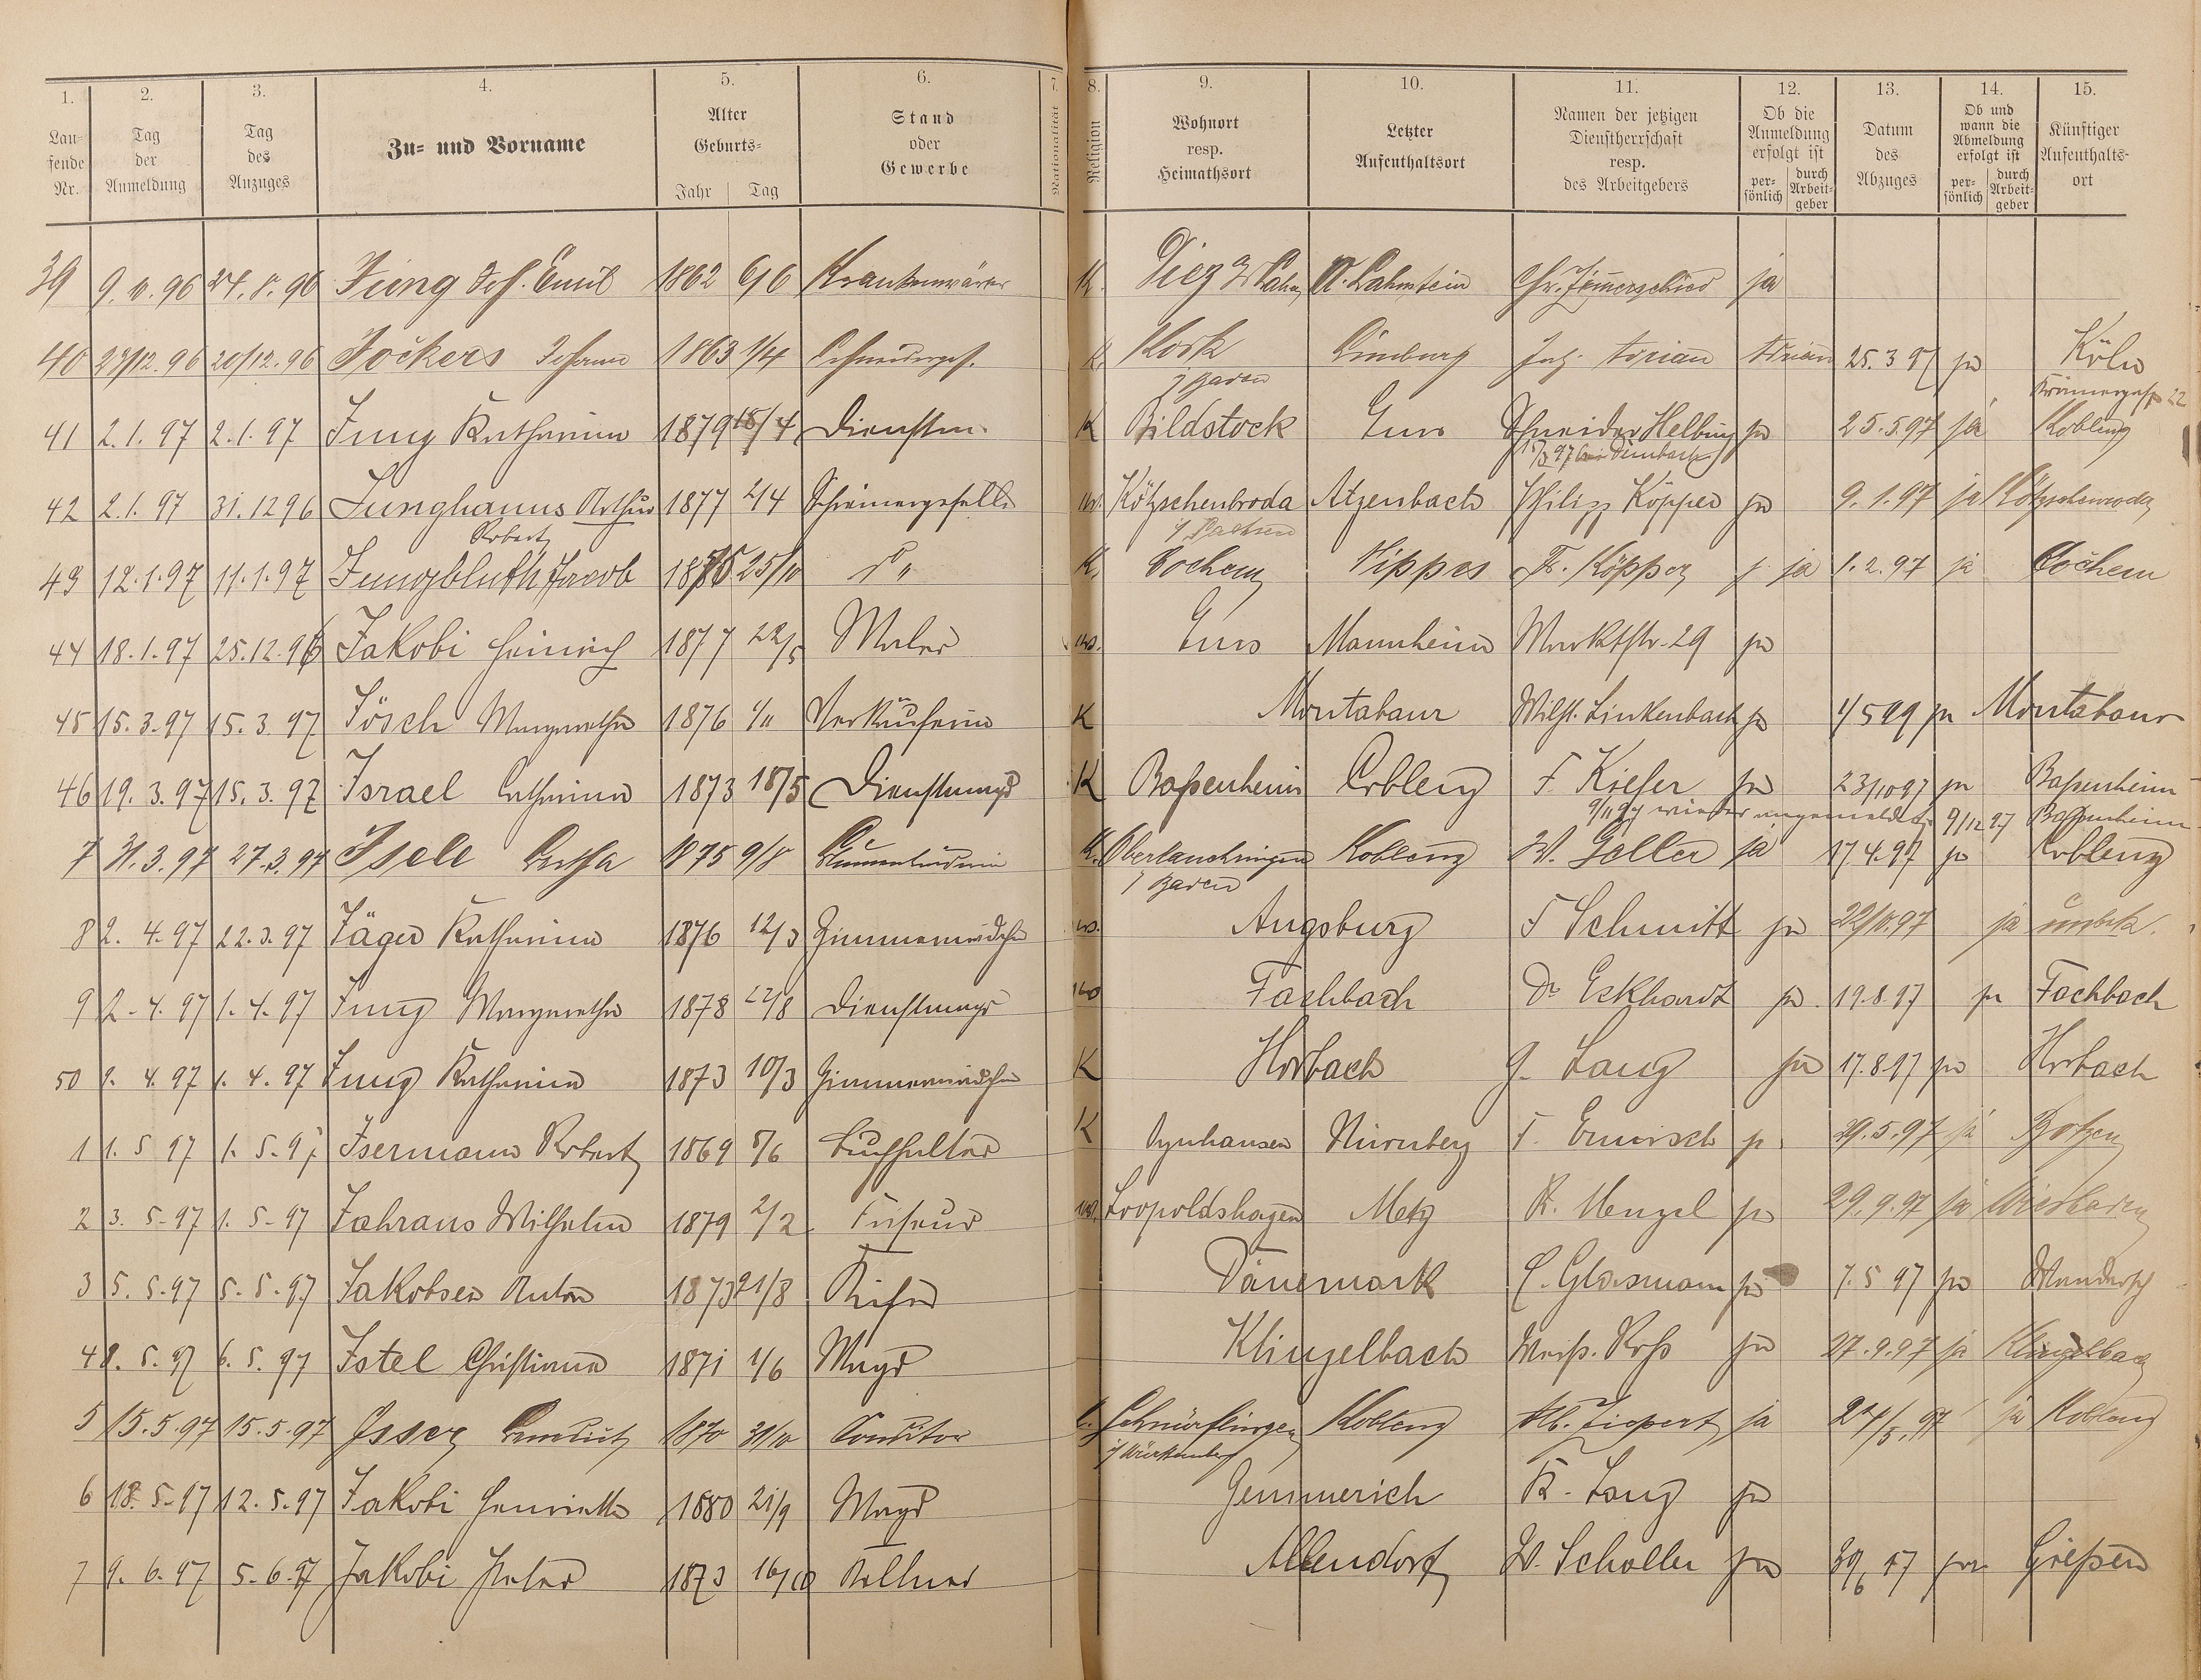 1. 2. 3. 4. 5. 6. 7. 8. 9. 10. 11. 12. 13. 14. 15.
Lau-fende Nr. Tag der Anmeldung Tag des Anzuges Zu- und Vorname Alter Geburts- Jahr Tag Stand oder Gewerbe Nationalität Religion Wohnort resp. Heimathsort Letzter Aufenthaltsort Namen der jetzigen Dienstherrschaft resp. des Arbeitgebers Ob die Anmeldung erfolgt ist per-sönlich durch Arbeit-geber Datum des Abzuges Ob und wann die Abmeldung erfolgt ist per-sönlich durch Arbeit-geber Künftiger Aufenthalts-ort
39 Jung Jos. Emil 1862 6/6 Krankenwärter K. Diez N. Lahnstein Chr. Zimmerschied ja
40 29/12.96 20/12.96 Jockers Johann 1863 1/4 Schneiderges. K. Kork Limburg Adrian Adrian 25.3 97 ja Köln
j Baden
41 2.1.97 2.1.97 Jung Katharina 1879 18/4 Dienstm. K Bildstock Ems Schneider Helbing ja 25.5.97 ja Koblenz
42 2.1.97 31.12 96 Junghanns Arthur 1877 2/4 Schreinergeselle Kötzschenbroda Atzenbach Philipp Köpper ja 9.1.97 ja Kötzschenroda
Robert i/ Sachsen
43 12.1.97 11.1.97 Jungbluth Jacob 25/10 do K. Cochem Nippes Köpper ja 1.2.97 ja Cochem
44 18.1.97 25.12.96 Jakobi Heinrich 1877 22/5 Maler Ems Mannheim Marktstr. 29 ja
45 15.3.97 15.3.97 Jösch Margaretha 1876 1/11 Verkäuferin K Montabaur Wilh. Linkenbach ja 1/5 99 ja Montabaur
46 19.3.97 15.3.97 Israel Catharina 1873 18/5 Dienstmagd K Baßenheim Coblenz F. Kiefer ja 23/10 97 ja Baßenheim
9/11 97 wieder angemeldet 9/12 97 Baßenheim
7 31.3.97 27.3.97 Isele Bertha 1875 9/8 Blumenbinderin K. Oberlauchringen Koblenz W. Geller ja 17.4.97 ja Coblenz
j Baden
8 2.4.97 22.3.97 Jäger Katharina 1876 12/3 Zimmermädchen Augsburg F Schmitt ja 22/10.97 ja unbek.
9 2.4.97 1.4.97 Jung Margaretha 1878 22/8 Dienstmagd Fachbach Dr Eckhardt ja 19.8.97 ja Fachbach
50 4.97 1.4.97 Jung Katharina 1873 10/3 Zimmermädchen K Horbach G. Lang ja 17.8.97 ja Horbach
1 1.5 97 1.5.97 Isermann Robert 1869 Buchhalter K Oynhausen Nürnberg ja 29.5.97 ja
2 3.5.97 1.5.97 Jahraus Wilhelm 1879 2/2 Friseur Leopoldshagen Metz R. Menzel ja 29.9.97 ja Wiesbaden
3 5.5.97 5.5.97 Jakobsen Anton 1873 21/8 Küfer Dänemark C. Glasmann ja 7.5 97 ja
4 8.5.97 6.5.97 Istel Christiana 1871 1/6 Magd Klingelbach ja 27.9.97 ja Klingelbach
5 15.5.97 15.5.97 Isser 1870 31/10 Conditor Schnürflingen Koblenz ja 24/5.97 ja Koblenz
j/ Württemberg
6 18.5.97 12.5.97 Jakobi Henriette 1880 21/9 Magd Gemmerich K. Lang ja
7 9.6.97 5.6.97 Jakobi Peter 1873 16/10 Kellner Allendorf W. Scholler ja ja Gießen